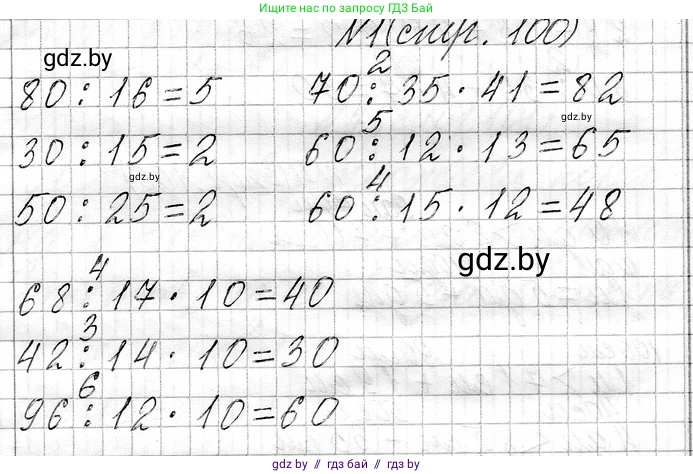 Ищите нас по запросу ГДЗ Бай
№1 (стр. 100)
gdz.by
80 : 16 = 5
30 : 15 = 2
gdz.by
50 : 25 = 2
2
70 : 35 · 41 = 82
gdz.by
5
60 : 12 · 13 = 65
4
60 : 15 · 12 = 48
gdz.by
4
68 : 17 · 10 = 40
3
42 : 14 · 10 = 30
6
96 : 12 · 10 = 60
gdz.by // гдз бай // gdz by